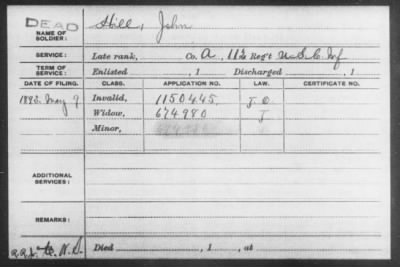 DEAD
NAME OF SOLDIER: Hill, John
SERVICE: Late rank, Co. A, 112 Reg't U.S.C. Inf
TERM OF SERVICE: Enlisted , 1 Discharged , 1
DATE OF FILING. CLASS. APPLICATION NO. LAW. CERTIFICATE NO.
1892. May 9 Invalid, 1150445. J O
Widow, 674980 J
Minor,
ADDITIONAL SERVICES:
REMARKS:
Died , 1 , at